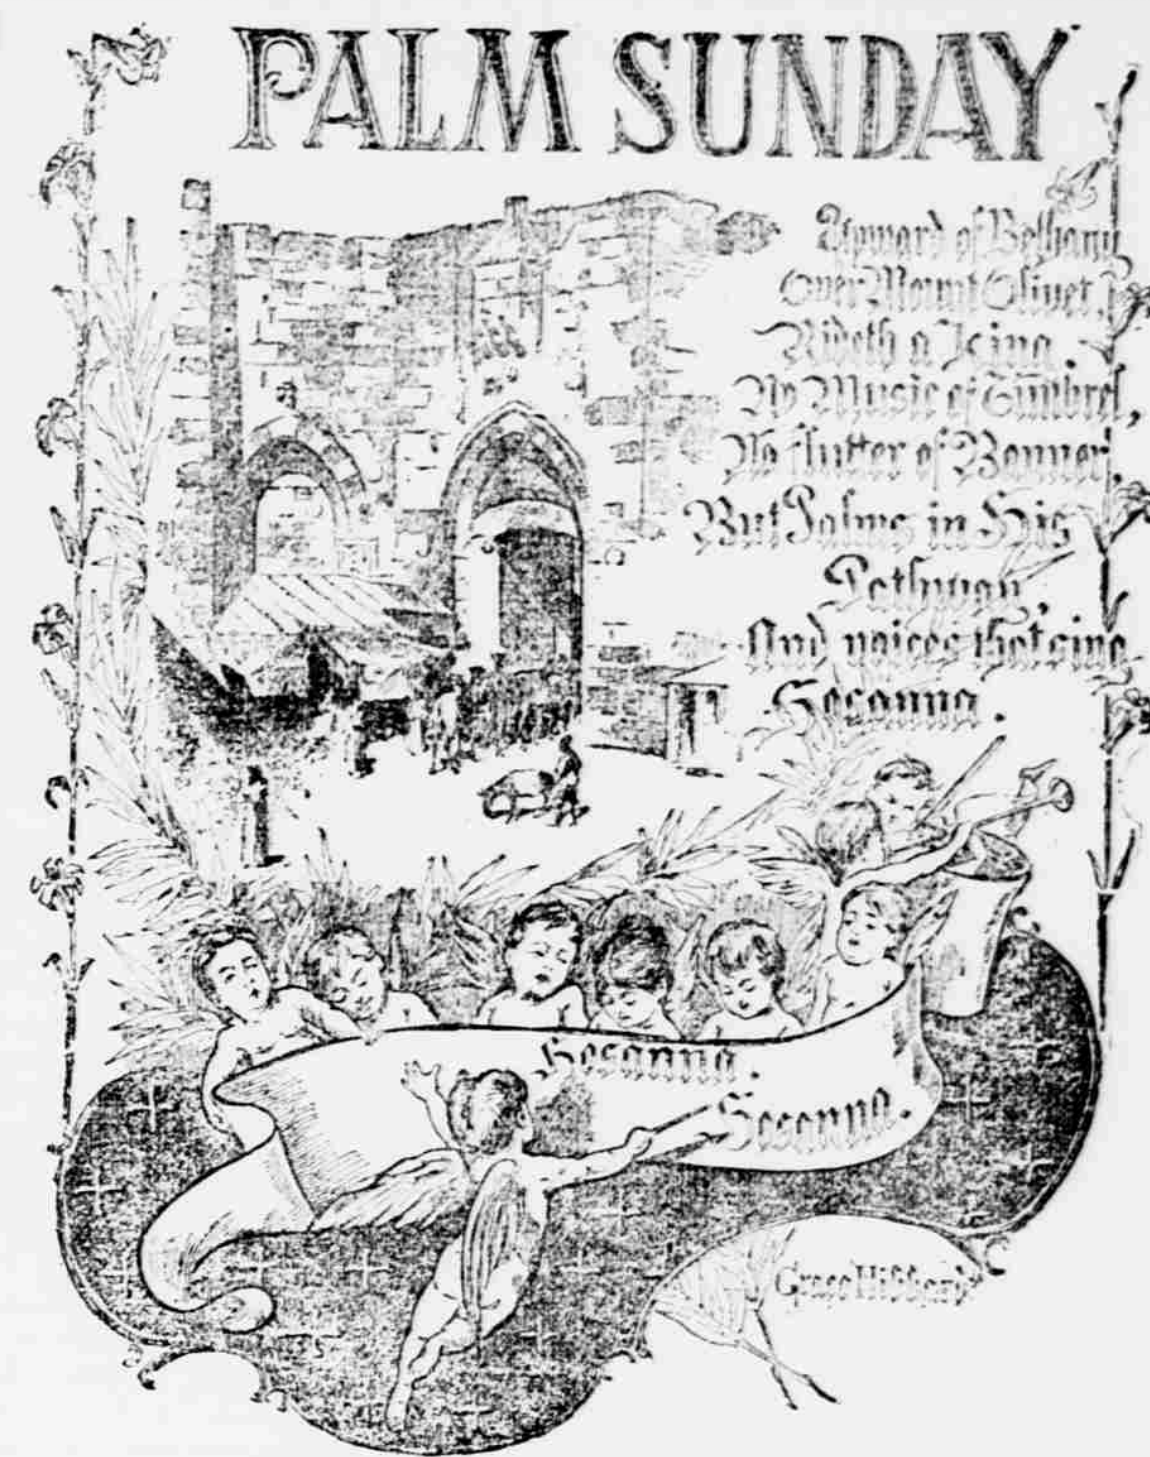 PALM SUNDAY
Upward of Bethany
Over Mount Olivet,
Rideth a King.
No Music of Timbrel,
No flutter of Banner,
But Palms in His
Pathway,
And voices that sing
Hosanna.
Hosanna.
Hosanna.
Grace Hibbard